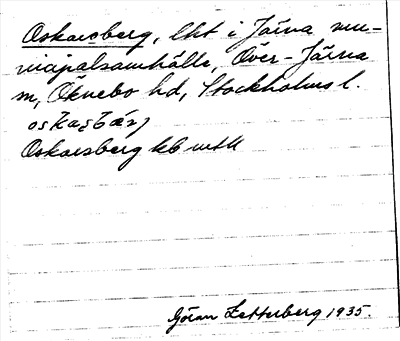 Oskarsberg, lht i Järna mu-
nicipalsamhälle, Över-Järna
sn, Öknebo hd, Stockholms l.
Oskarsberg kb
Göran Zetterberg 1935.